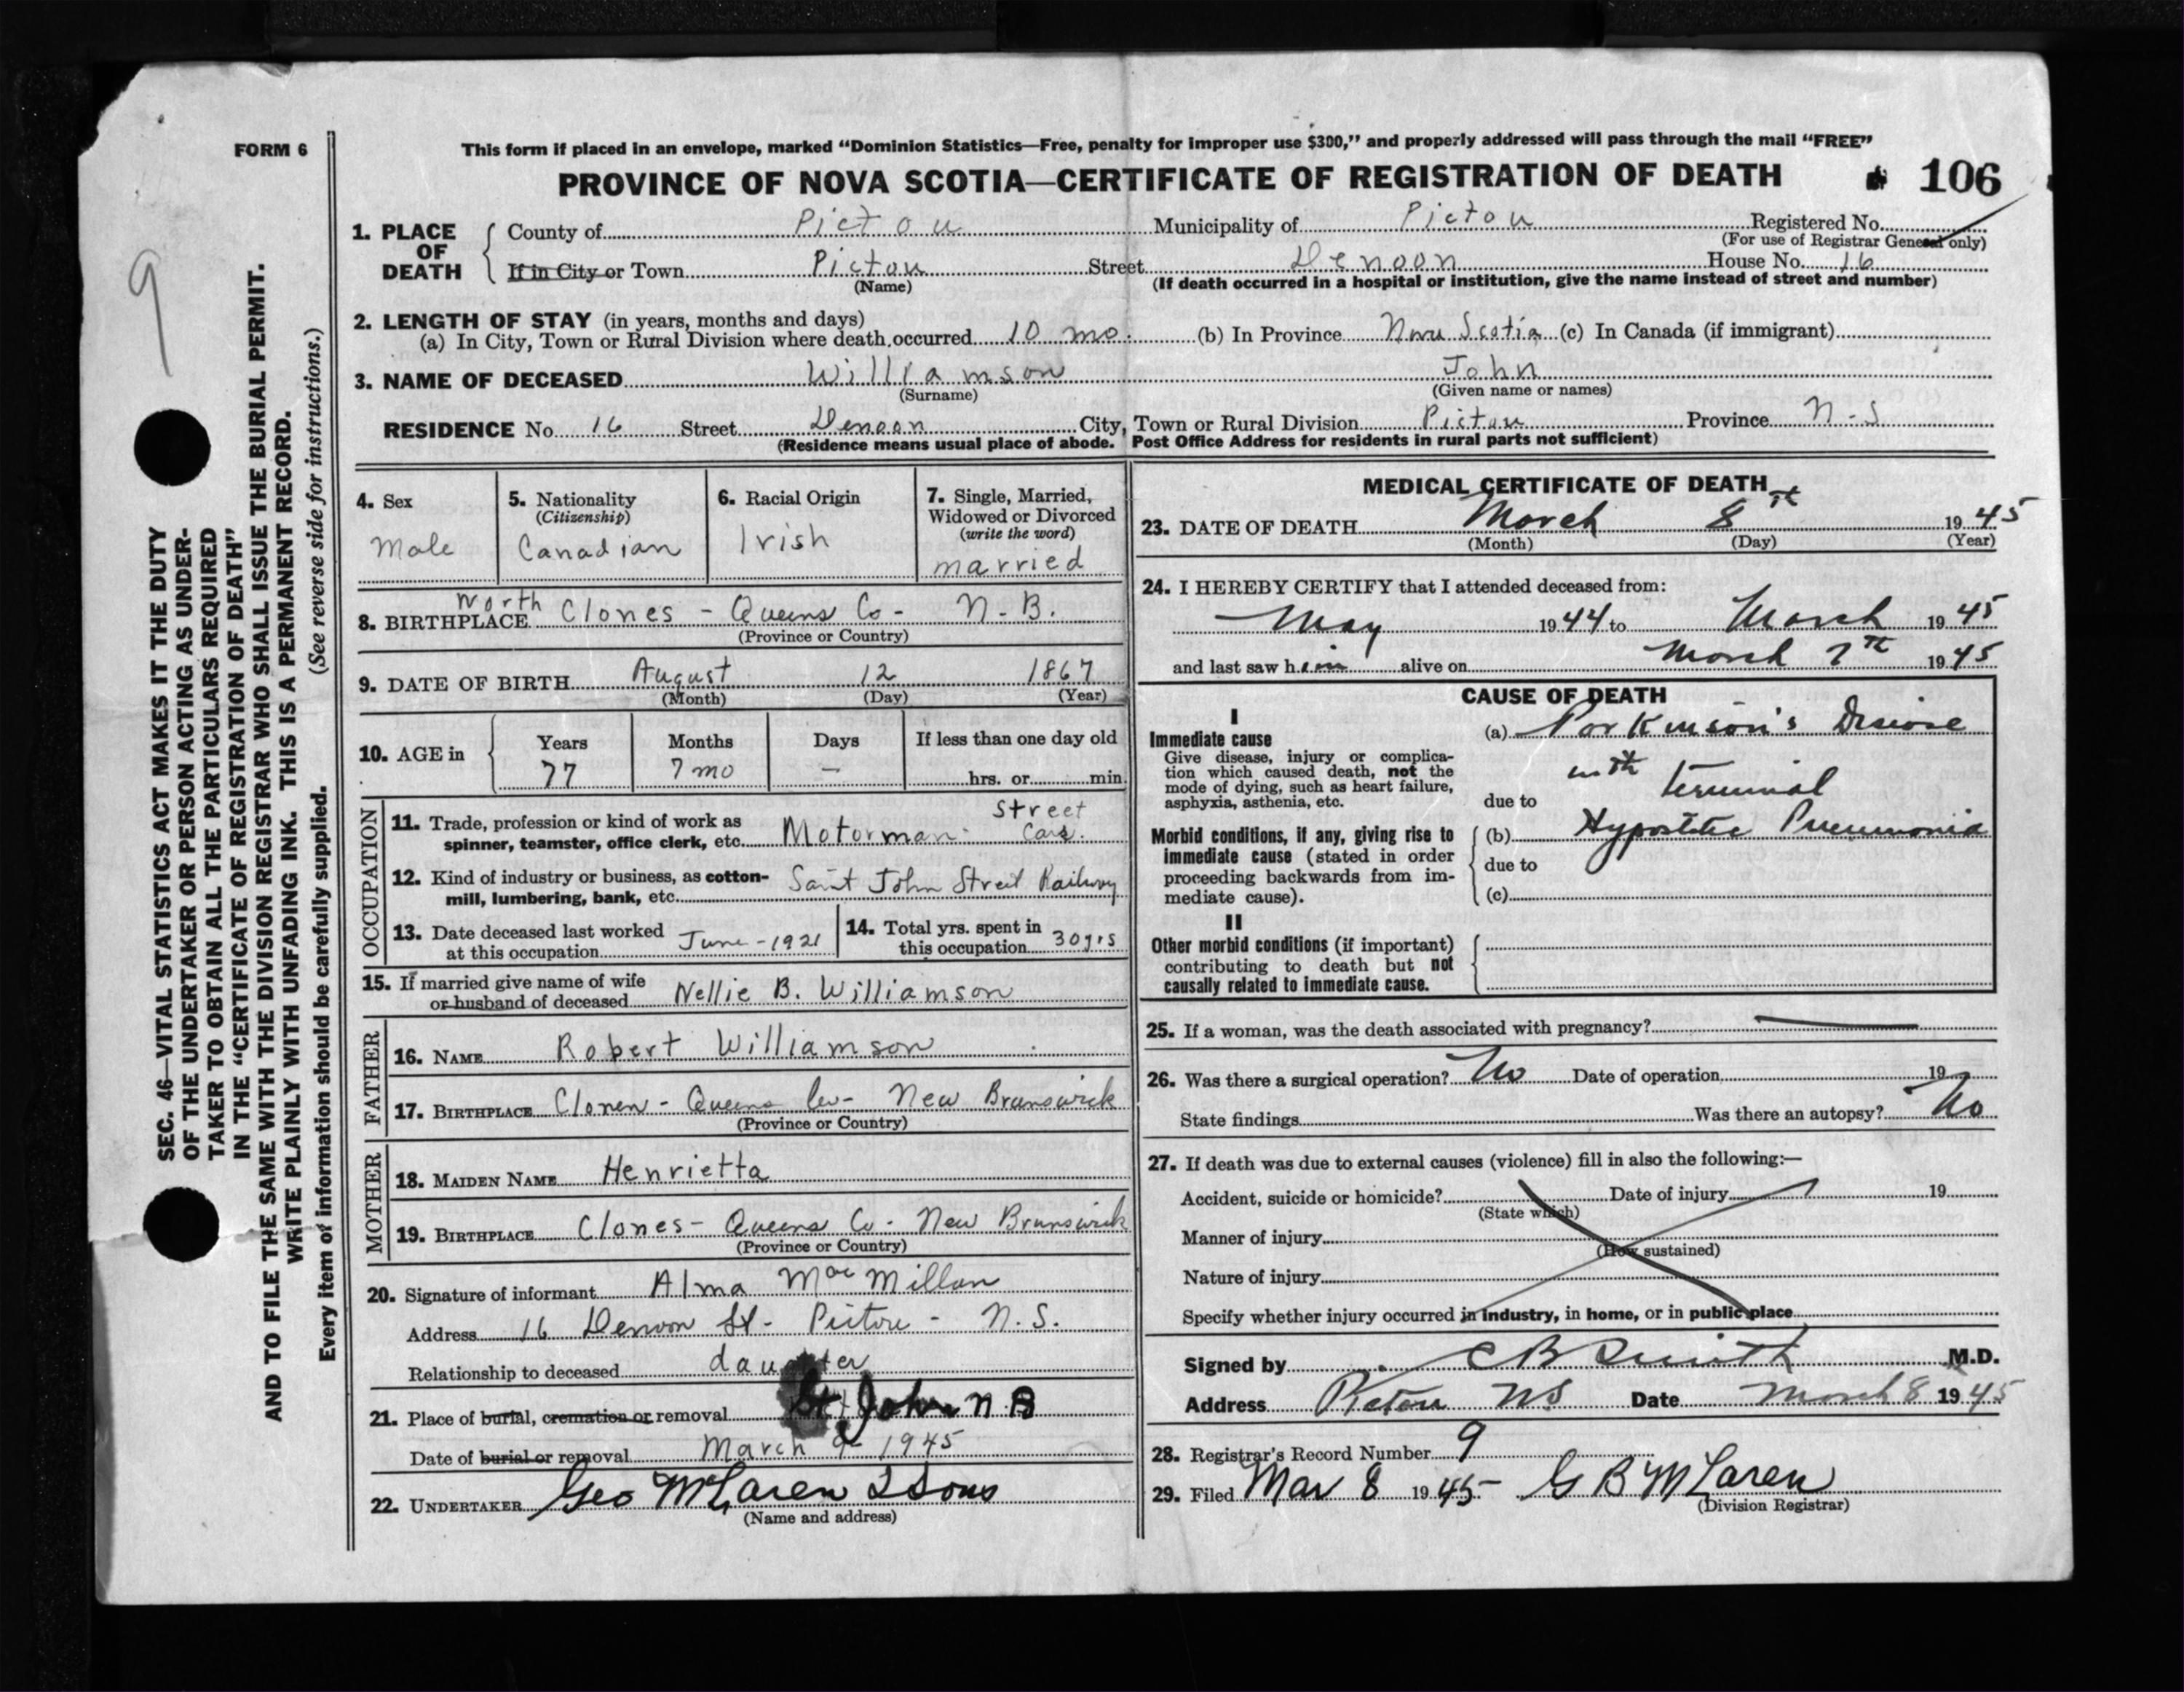 FORM 6
This form if placed in an envelope, marked “Dominion Statistics—Free, penalty for improper use $300,” and properly addressed will pass through the mail “FREE”
PROVINCE OF NOVA SCOTIA—CERTIFICATE OF REGISTRATION OF DEATH
106
9
SEC. 46—VITAL STATISTICS ACT MAKES IT THE DUTY
OF THE UNDERTAKER OR PERSON ACTING AS UNDER-
TAKER TO OBTAIN ALL THE PARTICULARS REQUIRED
IN THE “CERTIFICATE OF REGISTRATION OF DEATH”
AND TO FILE THE SAME WITH THE DIVISION REGISTRAR WHO SHALL ISSUE THE BURIAL PERMIT.
WRITE PLAINLY WITH UNFADING INK. THIS IS A PERMANENT RECORD.
Every item of information should be carefully supplied. (See reverse side for instructions.)
1. PLACE OF DEATH
County of Pictou Municipality of Pictou Registered No.
(For use of Registrar General only)
If in City or Town Pictou Street Denoon House No. 16
(Name) (If death occurred in a hospital or institution, give the name instead of street and number)
2. LENGTH OF STAY (in years, months and days)
(a) In City, Town or Rural Division where death occurred 10 mo. (b) In Province Nova Scotia (c) In Canada (if immigrant)
3. NAME OF DECEASED Williamson John
(Surname) (Given name or names)
RESIDENCE No. 16 Street Denoon City, Town or Rural Division Pictou Province N-S
(Residence means usual place of abode. Post Office Address for residents in rural parts not sufficient)
4. Sex
Male
5. Nationality
(Citizenship)
Canadian
6. Racial Origin
Irish
7. Single, Married,
Widowed or Divorced
(write the word)
married
8. BIRTHPLACE North Clones - Queens Co - N.B.
(Province or Country)
9. DATE OF BIRTH August 12 1867
(Month) (Day) (Year)
10. AGE in
Years Months Days If less than one day old
77 7 mo — hrs. or min.
OCCUPATION
11. Trade, profession or kind of work as
spinner, teamster, office clerk, etc. Motorman Street Cars.
12. Kind of industry or business, as cotton-
mill, lumbering, bank, etc. Saint John Street Railway
13. Date deceased last worked
at this occupation June - 1921
14. Total yrs. spent in
this occupation 30 yrs
15. If married give name of wife
or husband of deceased Nellie B. Williamson
FATHER
16. NAME Robert Williamson
17. BIRTHPLACE Clonen - Queens Co - New Brunswick
(Province or Country)
MOTHER
18. MAIDEN NAME Henrietta
19. BIRTHPLACE Clones - Queens Co. New Brunswick
(Province or Country)
20. Signature of informant Alma MacMillan
Address 16 Denoon St - Pictou - N.S.
Relationship to deceased daughter
21. Place of burial, cremation or removal St John N B
Date of burial or removal March 9 - 1945
22. UNDERTAKER Geo McLaren & Sons
(Name and address)
MEDICAL CERTIFICATE OF DEATH
23. DATE OF DEATH March 8th 1945
(Month) (Day) (Year)
24. I HEREBY CERTIFY that I attended deceased from:
May 1944 to March 1945
and last saw him alive on March 7th 1945
CAUSE OF DEATH
I
Immediate cause
Give disease, injury or complica-
tion which caused death, not the
mode of dying, such as heart failure,
asphyxia, asthenia, etc.
(a) Parkinson's Disease
with terminal
due to
Morbid conditions, if any, giving rise to
immediate cause (stated in order
proceeding backwards from im-
mediate cause).
(b) Hypostatic Pneumonia
due to
(c)
II
Other morbid conditions (if important)
contributing to death but not
causally related to immediate cause.
25. If a woman, was the death associated with pregnancy? —
26. Was there a surgical operation? No Date of operation 19
State findings Was there an autopsy? No
27. If death was due to external causes (violence) fill in also the following:—
Accident, suicide or homicide? Date of injury 19
(State which)
Manner of injury
(How sustained)
Nature of injury
Specify whether injury occurred in industry, in home, or in public place
Signed by C B Smith M.D.
Address Pictou NS Date March 8 1945
28. Registrar's Record Number 9
29. Filed Mar 8 1945 G B McLaren
(Division Registrar)